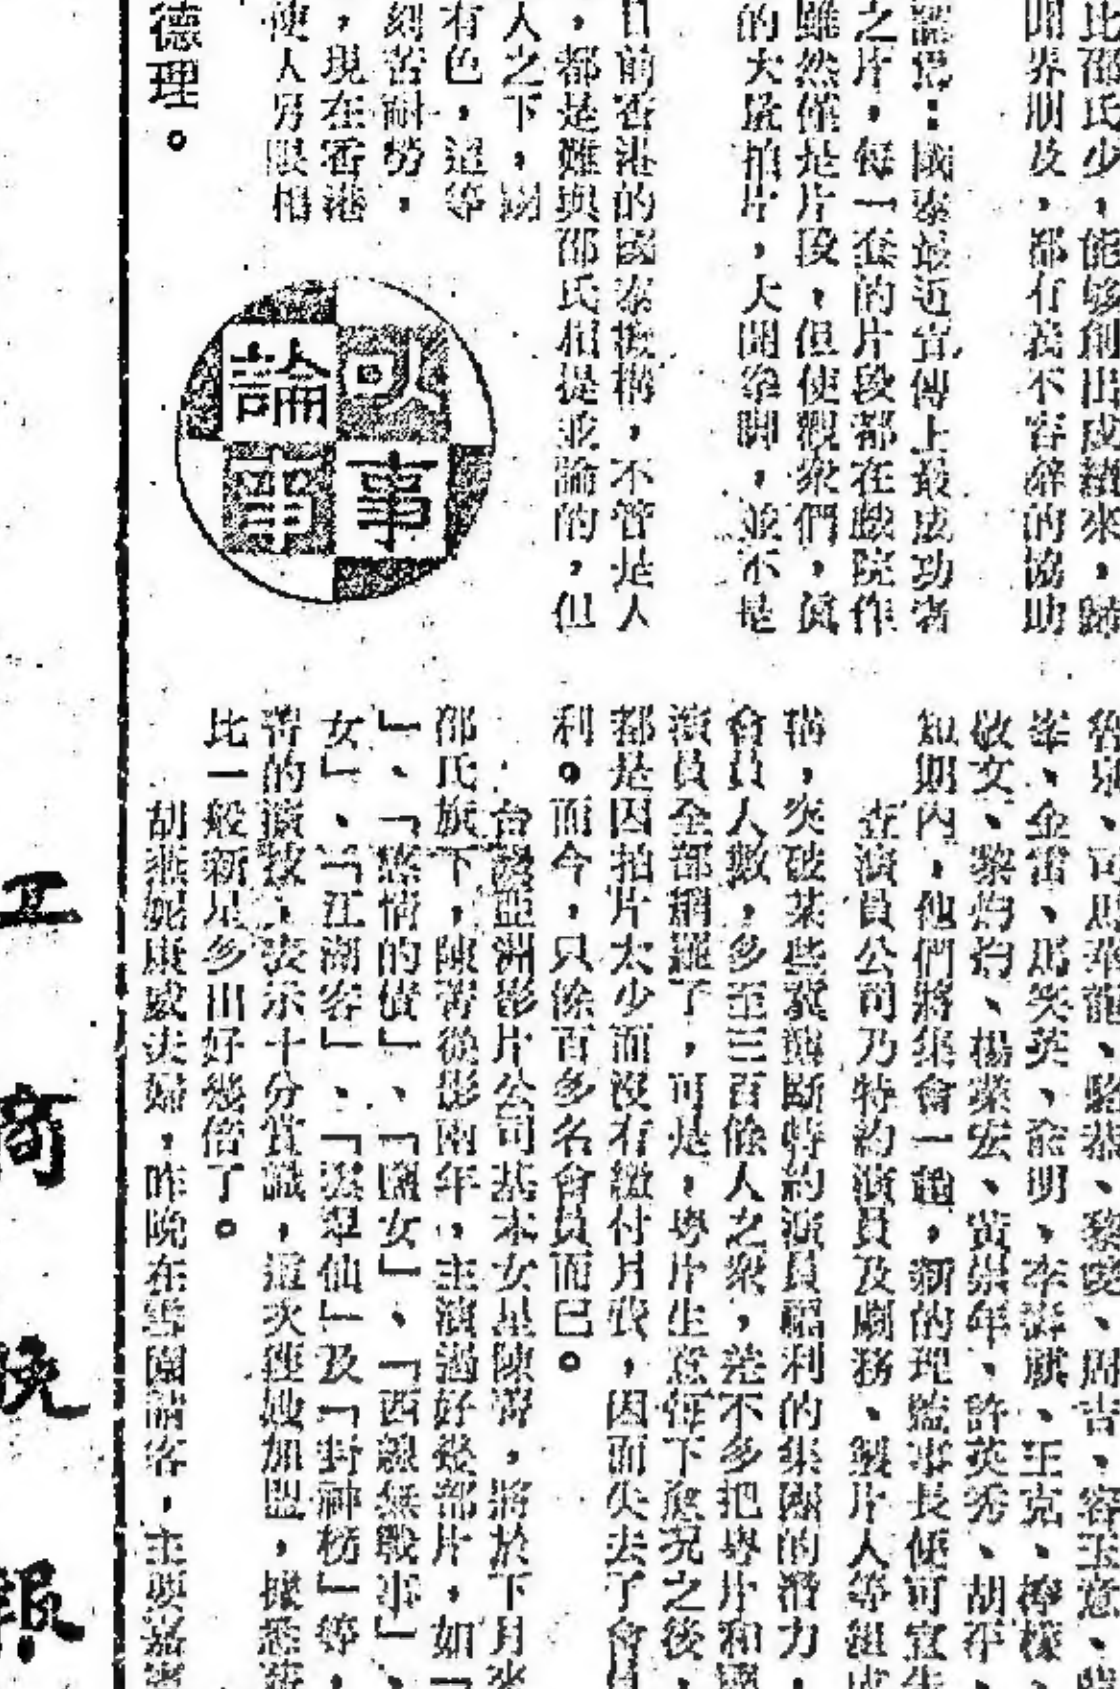 比邵氏少，能够創出成績來，
聞界朋友，都有義不容辭的協助
國泰最近宣傳上最成功者
之片，每一套的片段都在戲院作
雖然僅是片段，但使觀衆們，眞
的大量拍片，大開拳脚，並不是
目前香港的國泰機構，不管是人
，都是難與邵氏相提並論的，但
人之下，
有色，這等
刻苦耐勞，
，現在香港
使人另眼相
德理。
以事論事
司馬華龍、駱恭、黎雯、周吉、容玉意、
峯、金雷、馬笑英、俞明、李壽祺、王克、
敬文、黎灼灼、楊業宏、黃崇年、許英秀、胡平、
短期內，他們將集會一趟，新的理監事長便可宣
查演員公司乃特約演員及劇務、製片人等組
構，突破某些冀壟斷特約演員福利的集團的潛力，
會員人數，多至三百餘人之衆，差不多把粤片和國
演員全部網羅了，可是，粤片生意每下愈况之後，
都是因拍片太少而沒有繳付月費，因而失去了會員
利。而今，只餘百多名會員而已。
台灣亞洲影片公司基本女星陳菁，將於下月來
邵氏旗下，陳菁從影兩年，主演過好幾部片，如「
」、「感情的債」、「鹽女」、「西線無戰事」、
女」、「江湖客」、「雲翠仙」及「封神榜」等，
菁的演技，表示十分賞識，這次獲她加盟，據悉
比一般新星多出好幾倍了。
胡燕妮康威夫婦，昨晚在雪園請客，主要嘉賓
工商晚報